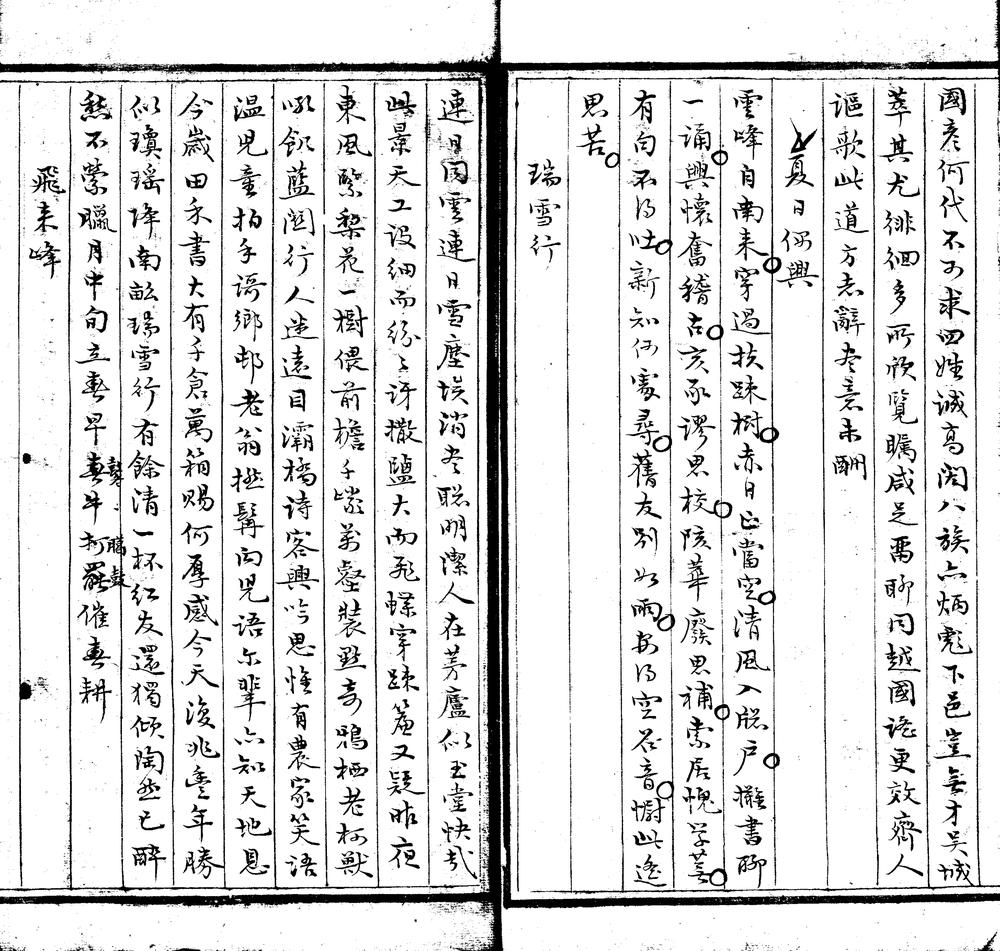 國彦何代不可求四姓誠高閎八族亦炳彪下邑豈無才吴城
萃其尤徘徊多所欣覽矚咸足留聊同越國謠更效齊人
謳歌此道方志辭卷意未酬
夏日偶興
雲峰自南来穿過扶踈樹赤日正當空清風入牕戶擁書聊
一誦興懷奮稽古亥豕謬思校陔華廢思補索居愧学荒
有句不得吐新知何處尋舊友別如雨安得空谷音慰此遙
思苦
瑞雪行
連日同雲連日雪塵埃消盡聰明潔人在茅廬似玉堂快哉
此景天工設細而紛々訝撒鹽大而飛蝶穿踈簾又疑昨夜
東風緊梨花一樹偎前檐千巖萬壑裝點奇鴉栖老柯獸
吼飢藍關行人迷遠目灞橋詩客興吟思惟有農家笑語
温兒童拍手語鄉邨老翁拯髯向兒語尓輩亦知天地恩
今歲田禾書大有千倉萬箱賜何厚感今天復兆豐年勝
似瓊瑶降南畝瑞雪行有餘清一杯紅友還獨傾陶然已醉
愁不縈臘月中旬立春早春牛打罷催春耕
鼕々臘鼓
飛来峰